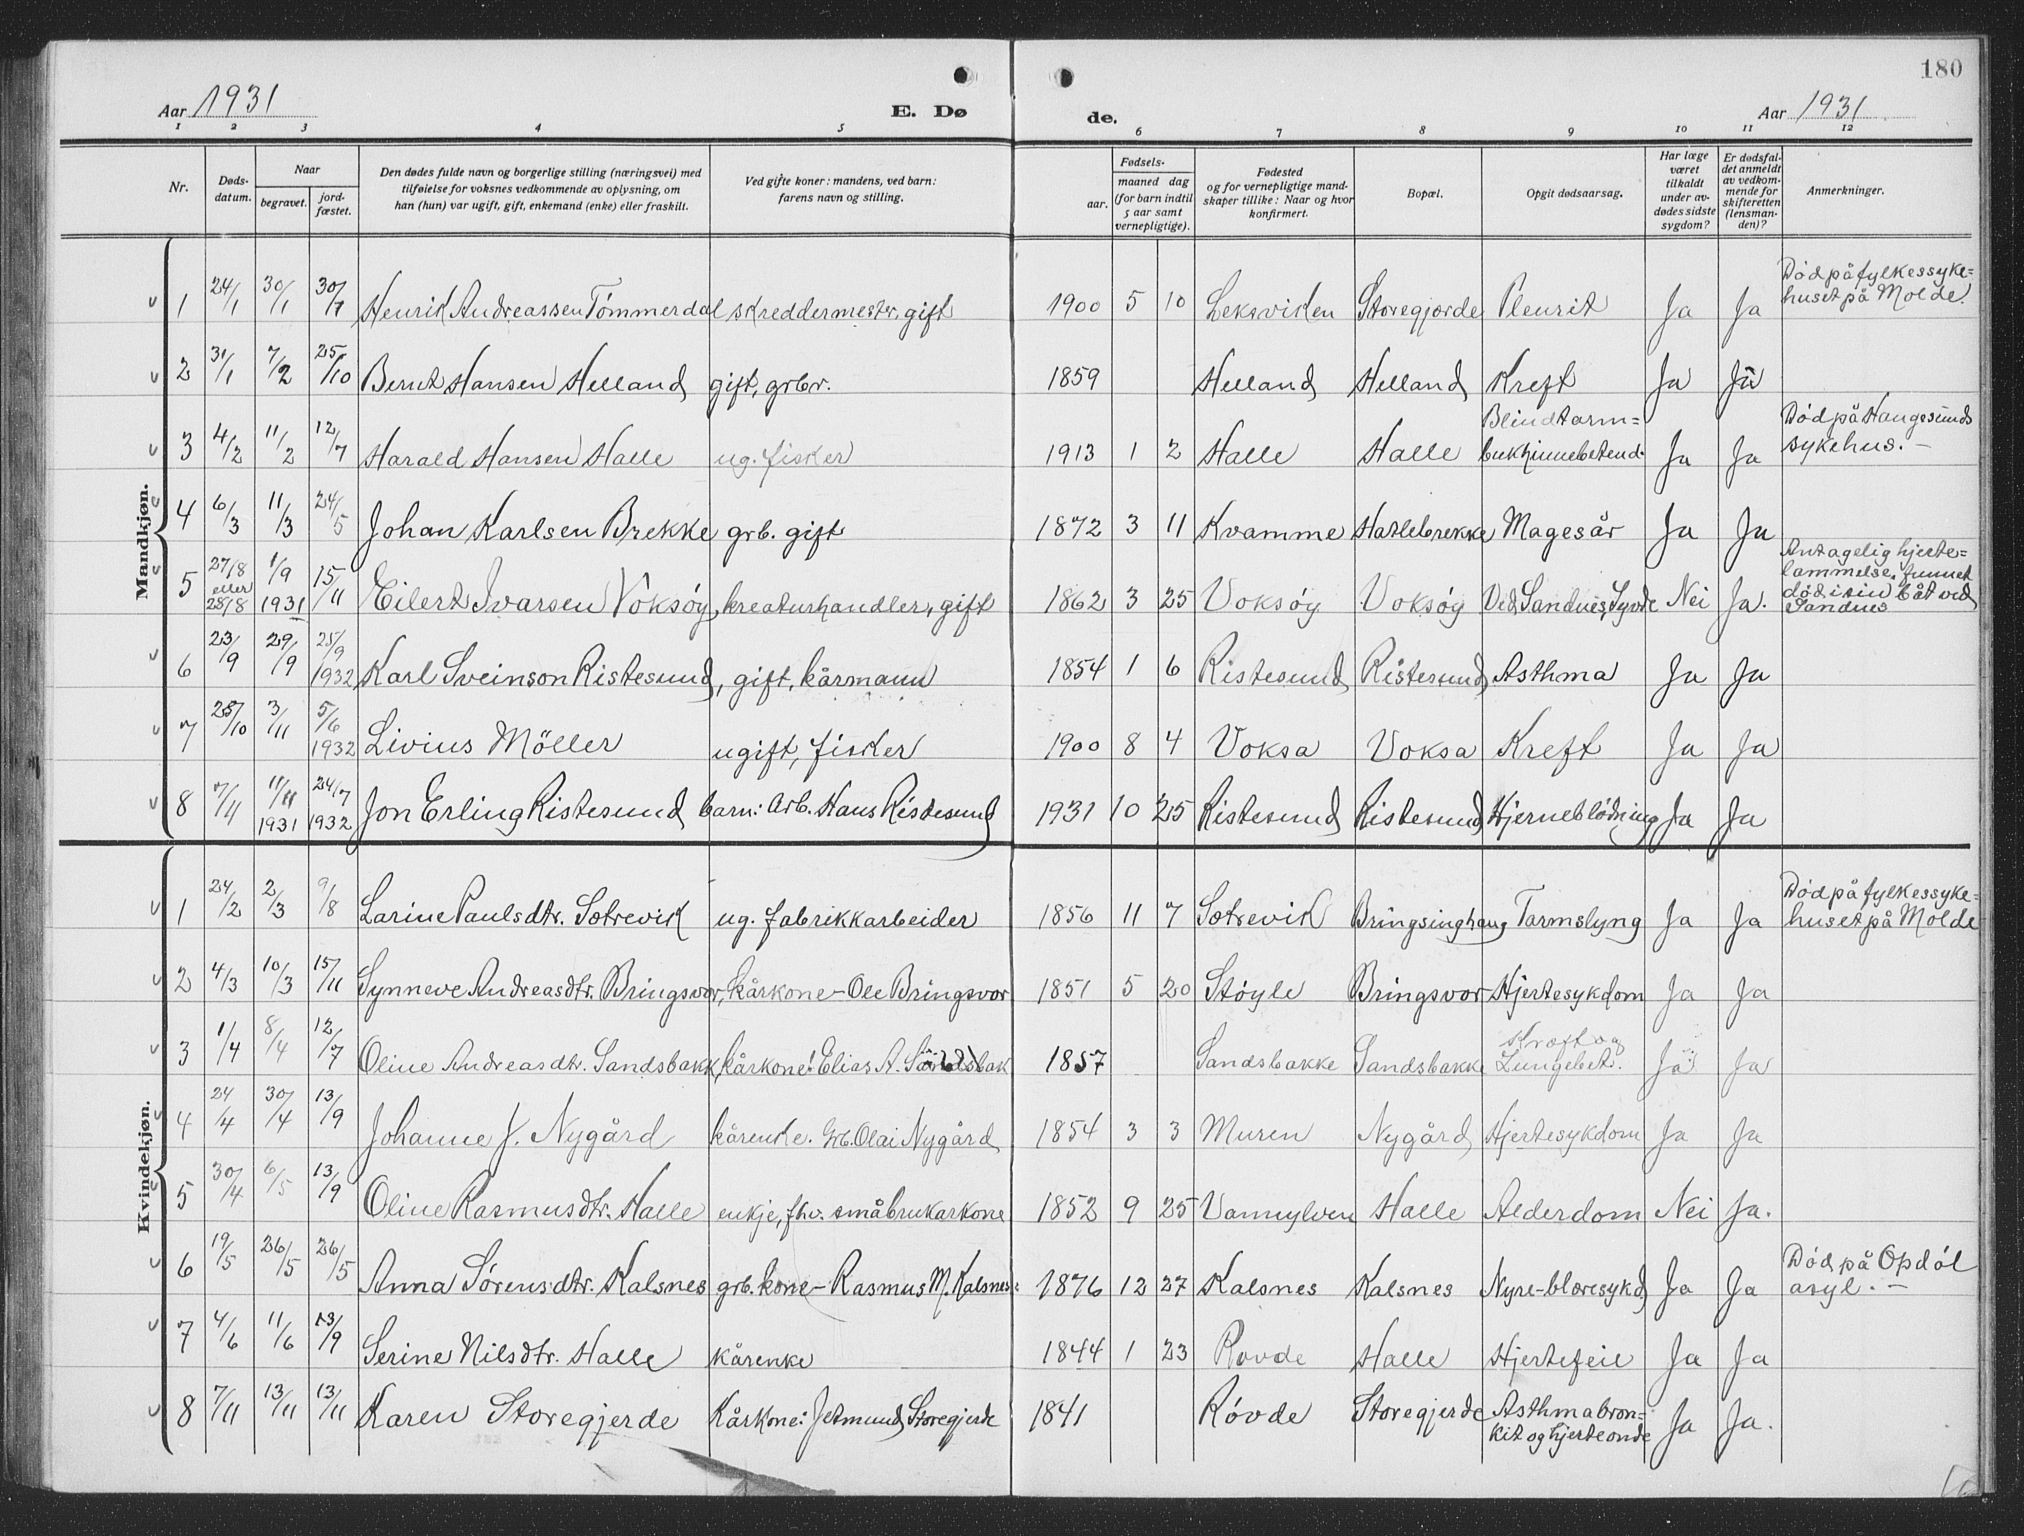 180
Aar 1931 E. Dø de. Aar 1931
1 2 3 4 5 6 7 8 9 10 11 12
Nr. Døds-datum. Naar begravet. jord-fæstet. Den dødes fulde navn og borgerlige stilling (næringsvei) med tilføielse for voksnes vedkommende av oplysning, om han (hun) var ugift, gift, enkemand (enke) eller fraskilt. Ved gifte koner: mandens, ved barn: farens navn og stilling. Fødsels- aar. maaned dag (for barn indtil 5 aar samt vernepligtige). Fødested og for vernepligtige mand-skaper tillike: Naar og hvor konfirmert. Bopæl. Opgit dødsaarsag. Har læge været tilkaldt under av-dødes sidste sygdom? Er dødsfal-det anmeldt av vedkom-mende for skifteretten (lensman-den)? Anmerkninger.
Mandkjøn.
1 24/1 30/1 30/1 Henrik Andreassen Tømmerdal skreddermester, gift 1900 5 10 Leksviken Storegjorde Pleurit Ja Ja Død på fylkessyke=huset på Molde.
2 31/1 7/2 25/10 Bernt Hansen Helland gift, grbr. 1859 Helland Helland Kreft Ja Ja
3 4/2 11/2 12/7 Harald Hansen Halle ug. fisker 1913 1 2 Halle Halle Blindtarm=bukhinnebetend. Ja Ja Død på Haugesunds sykehus. -
4 6/3 11/3 24/5 Johan Karlsen Brekke grb. gift 1872 3 11 Kvamme Hatlebrekke Magesår Ja Ja
5 27/8 eller 28/8 1/9 1931 15/11 Eilert Ivarsen Voksøy, kreaturhandler, gift 1862 3 25 Voksøy Voksøy Ved Sandnes, Syvde Nei Ja. Antagelig hjerte=lammelse, funnet død i sin båt ved Sandnes
6 23/9 29/9 25/9 1932 Karl Sveinson Ristesund, gift, kårmann 1854 1 6 Ristesund Ristesund Asthma Ja Ja
7 28/10 3/11 5/6 1932 Livius Möller ugift, fisker 1900 8 4 Voksa Voksa Kreft Ja Ja
8 7/11 11/11 1931 24/7 1932 Jon Erling Ristesund barn: Arb. Hans Ristesund 1931 10 25 Ristesund Ristesund Hjerneblödning Ja Ja
Kvindekjøn.
1 24/2 2/3 9/8 Larine Paulsdtr. Sætrevik ug. fabrikkarbeider 1856 11 7 Sætrevik Bringsinghaug Tarmslyng Ja Ja Død på fylkessyke=huset på Molde
2 4/3 10/3 15/11 Synneve Andreasdtr. Bringsvor, kårkone - Ole Bringsvor 1851 5 20 Støyle Bringsvor Hjertesykdom Ja Ja
3 1/4 8/4 12/7 Oline Andreasdtr. Sandsbakk, kårkone: Elias A. Sandsbak 1857 Sandsbakke Sandsbakke Kræft og Lungebet. Ja Ja
4 24/4 30/4 13/9 Johanne J. Nygård kårenke. Grb. Olai Nygård 1854 3 3 Muren Nygård Hjertesykdom Ja Ja
5 30/4 6/5 13/9 Oline Rasmusdtr. Halle enkje, fhv. småbrukarkone 1852 9 25 Vannylven Halle Alderdom Nei Ja.
6 19/5 26/5 26/5 Anna Sørensdtr. Kalsnes grb. kone - Rasmus M. Kalsnes: 1876 12 27 Kalsnes Kalsnes Nyre-blæresykd. Ja Ja Død på Opdøl asyl. -
7 4/6 11/6 13/9 Serine Nilsdtr. Halle kårenke 1844 1 23 Rovde Halle Hjertefeil Ja Ja
8 7/11 13/11 13/11 Karen Storegjerde Kårkone: Jetmund Storegjerde 1841 Róvde Storegjerde Asthma bron=kit og hjerteonde Ja Ja.